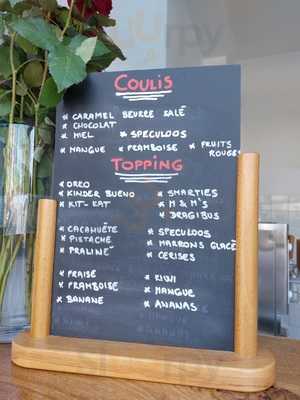 COULIS
* CARAMEL BEURRE SALÉ
* CHOCOLAT
* MIEL * SPECULOOS
* MANGUE * FRAMBOISE * FRUITS ROUGES
TOPPING
* OREO * SMARTIES
* KINDER BUENO * M & M'S
* KIT-KAT * DRAGIBUS
* CACAHUÈTE * SPECULOOS
* PISTACHE * MARRONS GLACÉ
* PRALINÉ * CERISES
* FRAISE * KIWI
* FRAMBOISE * MANGUE
* BANANE * ANANAS